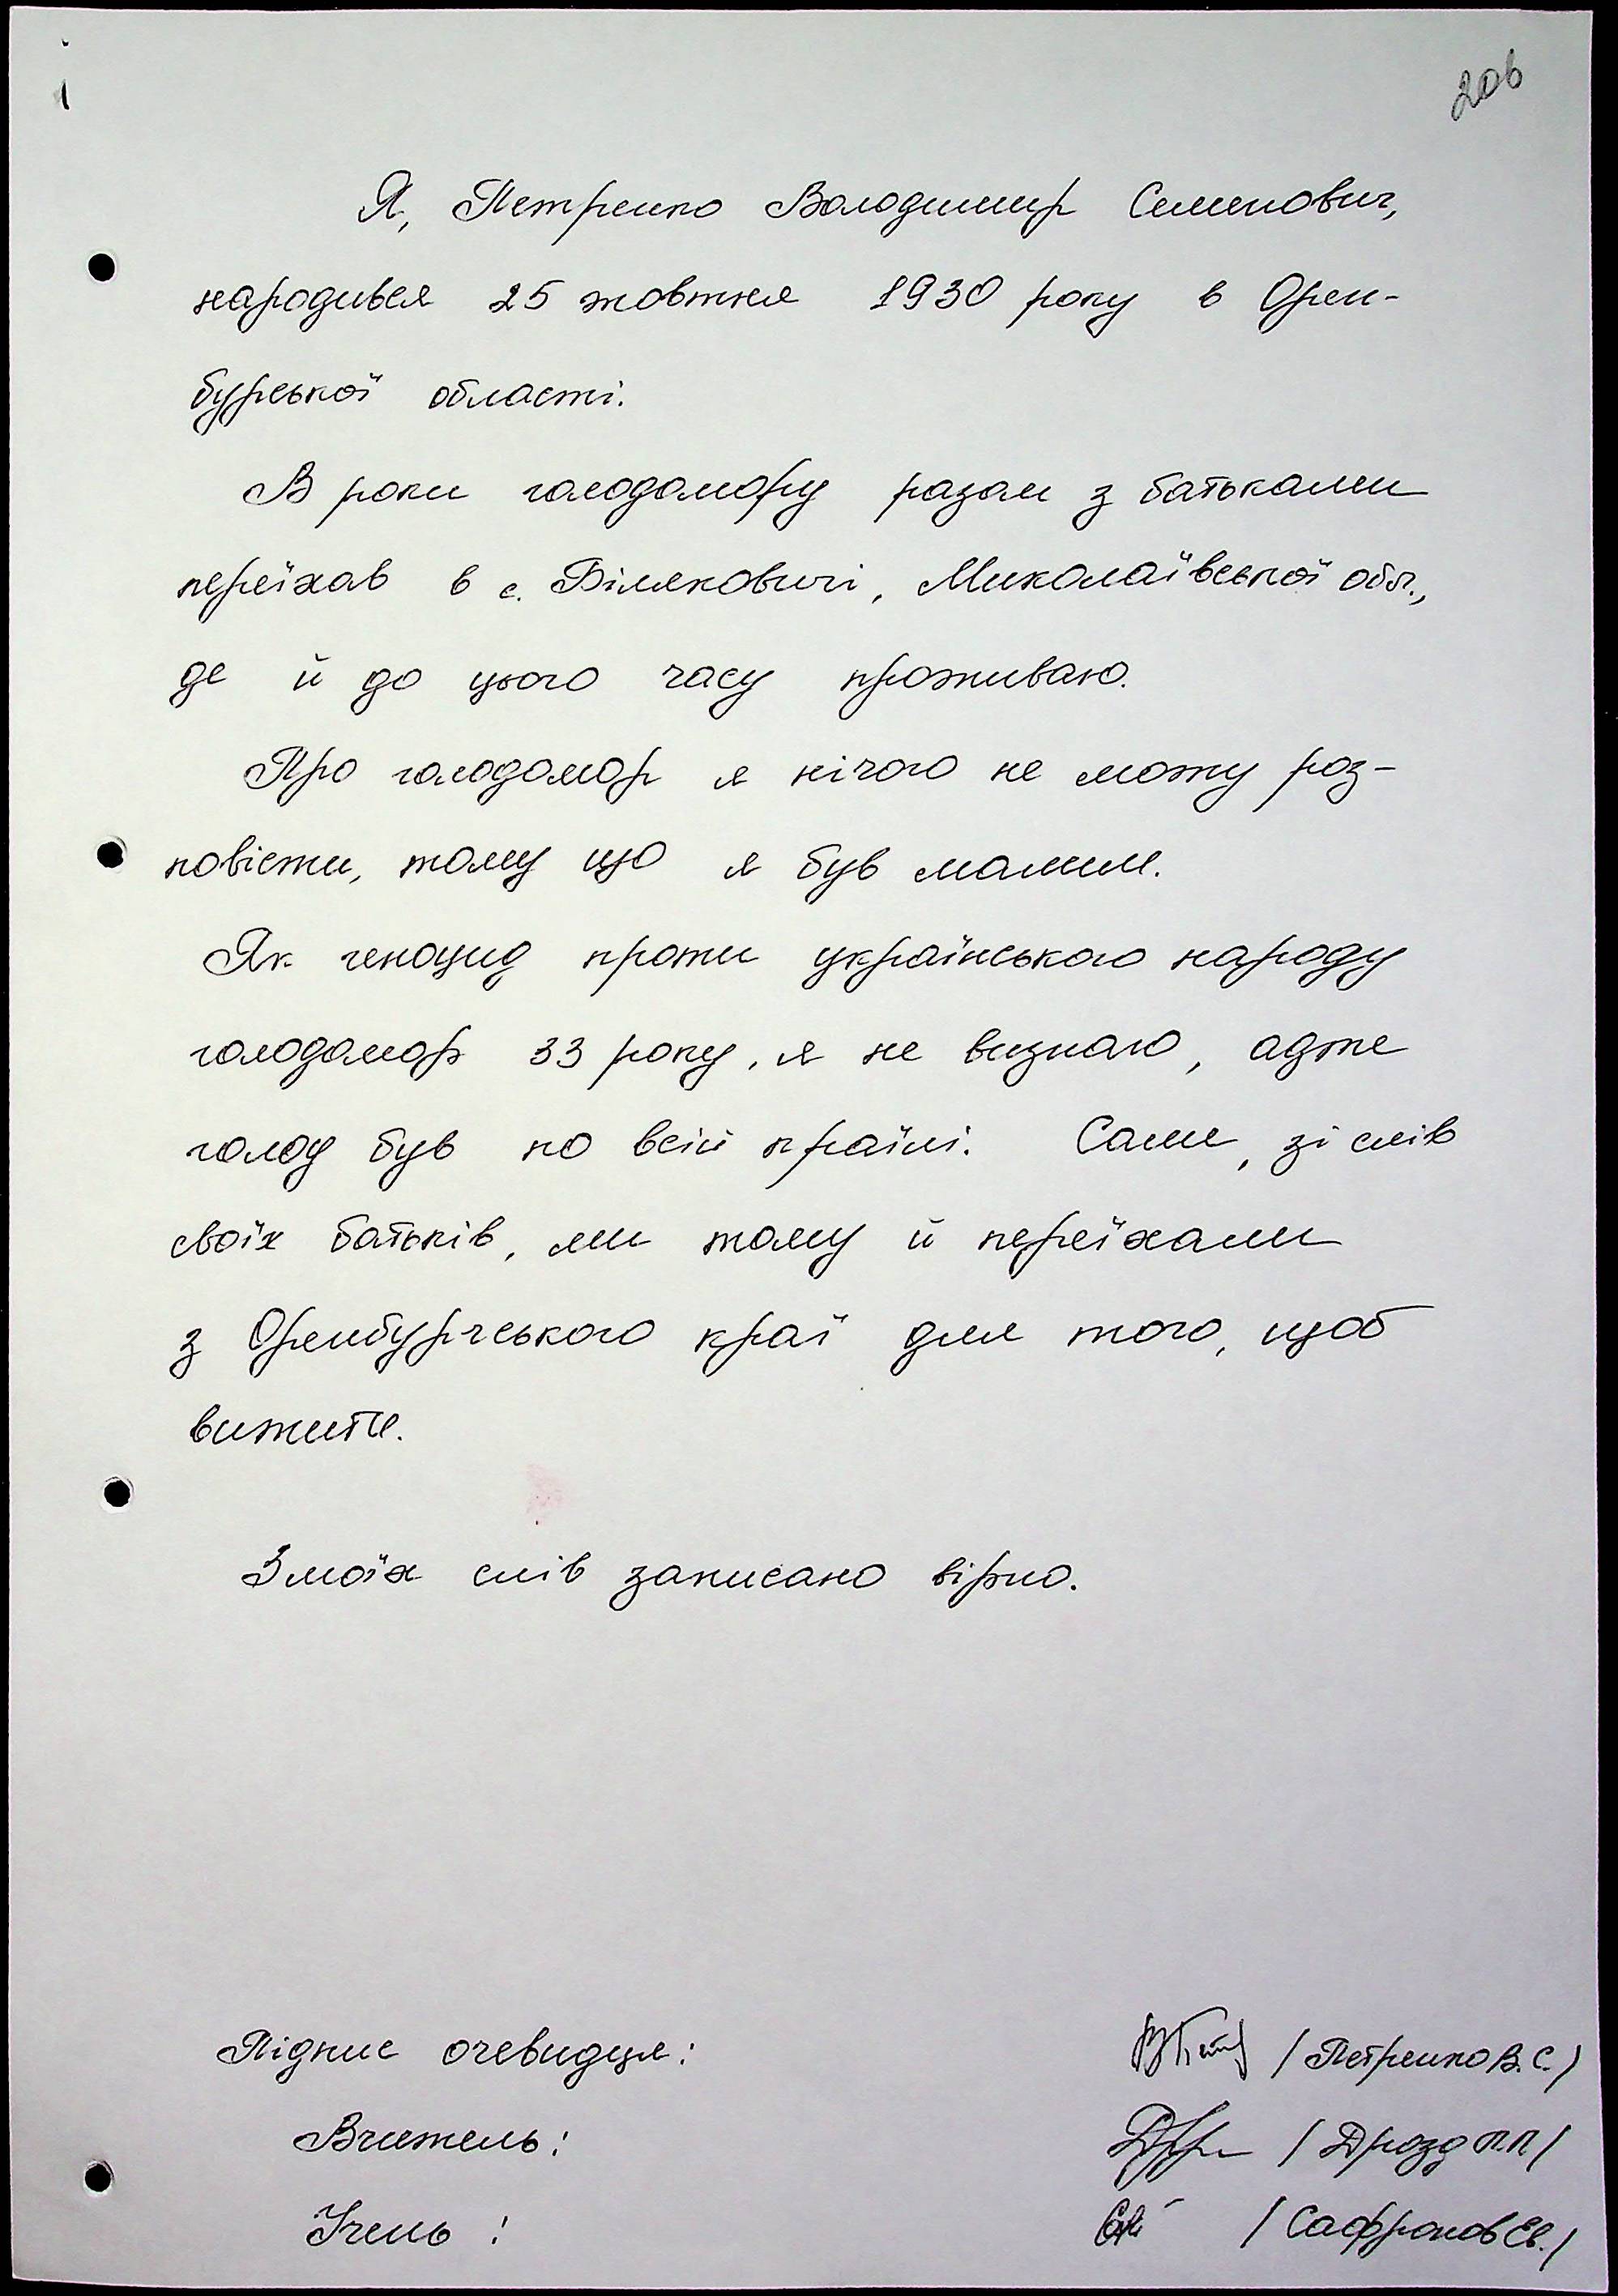 206
Я, Петренко Володимир Семенович,
народився 25 жовтня 1930 року в Орен-
бурської області.
В роки голодомору разом з батьками
переїхав в с. Біляковичі, Миколаївської обл.,
де й до цього часу проживаю.
Про голодомор я нічого не можу роз-
повісти, тому що я був малим.
Як геноцид проти українського народу
голодомор 33 року, я не визнаю, адже
голод був по всій країні. Саме, зі слів
своїх батьків, ми тому й переїхали
з Оренбургського краї для того, щоб
вижити.
З моїх слів записано вірно.
Підпис очевидця: /Петренко В.С./
Вчитель: /Дрозд П.П/
Учень: /Сафронов Є.В./